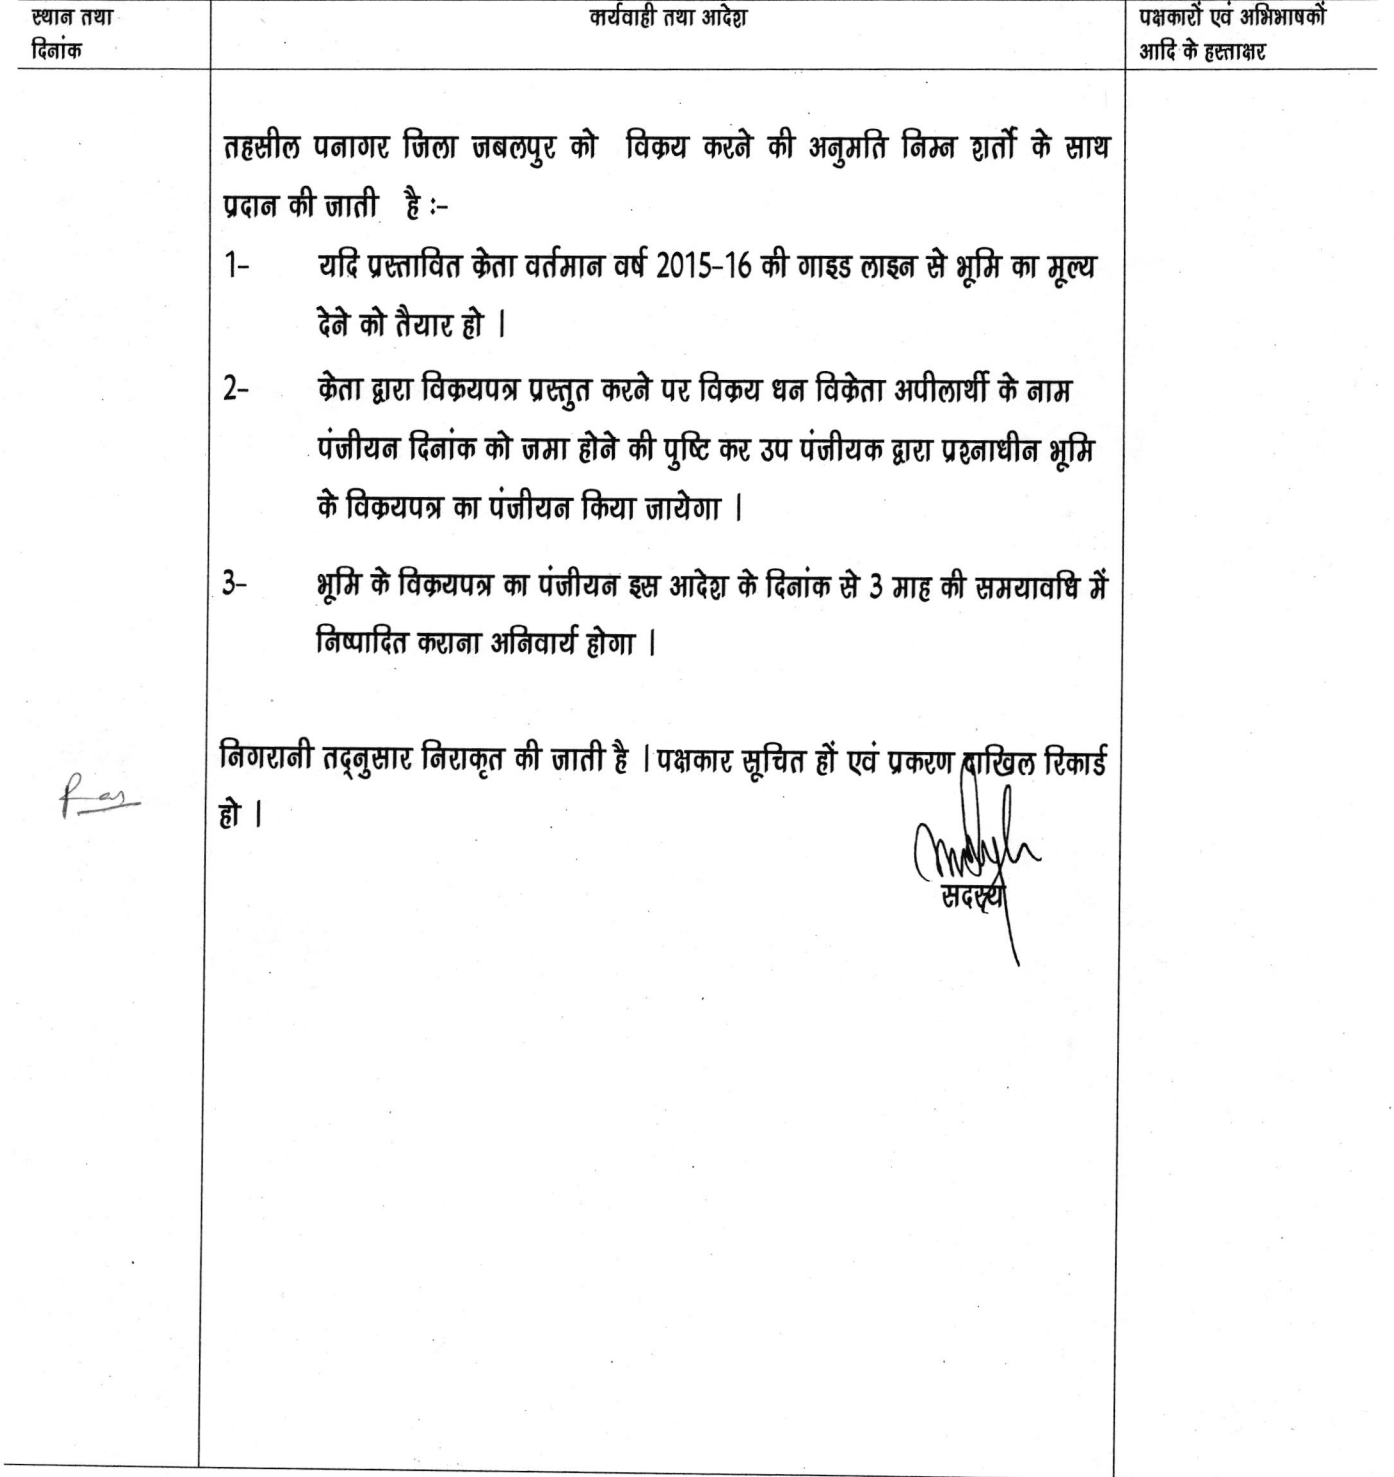 स्थान तथा
दिनांक
कार्यवाही तथा आदेश
पक्षकारों एवं अभिभाषकों
आदि के हस्ताक्षर
तहसील पनागर जिला जबलपुर को विक्रय करने की अनुमति निम्न शर्तो के साथ
प्रदान की जाती है :-
1- यदि प्रस्तावित क्रेता वर्तमान वर्ष 2015-16 की गाइड लाइन से भूमि का मूल्य
देने को तैयार हो ।
2- क्रेता द्वारा विक्रयपत्र प्रस्तुत करने पर विक्रय धन विक्रेता अपीलार्थी के नाम
पंजीयन दिनांक को जमा होने की पुष्टि कर उप पंजीयक द्वारा प्रश्नाधीन भूमि
के विक्रयपत्र का पंजीयन किया जायेगा ।
3- भूमि के विक्रयपत्र का पंजीयन इस आदेश के दिनांक से 3 माह की समयावधि में
निष्पादित कराना अनिवार्य होगा ।
निगरानी तद्नुसार निराकृत की जाती है । पक्षकार सूचित हों एवं प्रकरण दाखिल रिकार्ड
हो ।
सदस्य